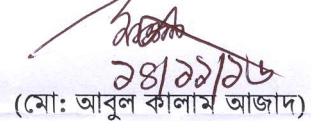 ১৪/১১/১৬
(মো: আবুল কালাম আজাদ)